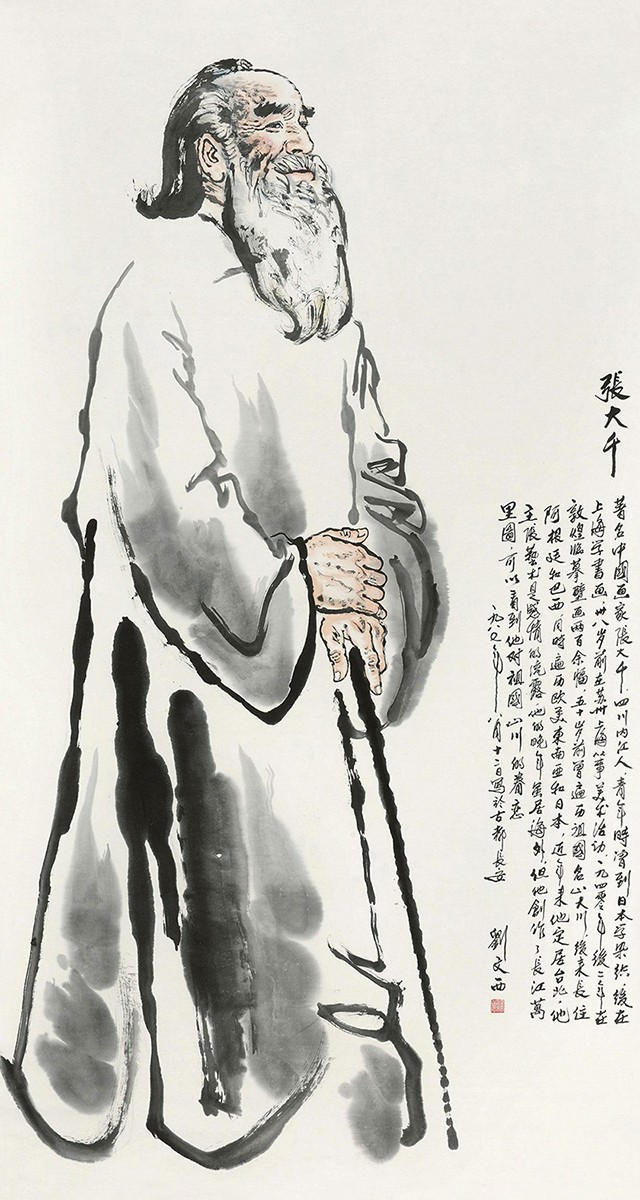 張大千
著名中國画家張大千，四川内江人，青年時曾到日本学染織，後在
上海学書画，卅八岁前在苏州上海从事美术活动，一九四零年後二年在
敦煌临摹壁画两百余幅，五十岁前曾遍历祖國名山大川，後来長住
阿根廷和巴西，同時遍历欧美東南亚和日本，近年来他定居台北，他
主張藝术是感情的流露，他的晚年虽居海外，但他創作了長江萬
里圖，可以看到他对祖國山川的眷恋
一九八〇年八月十二日寫於古都長安
劉文西